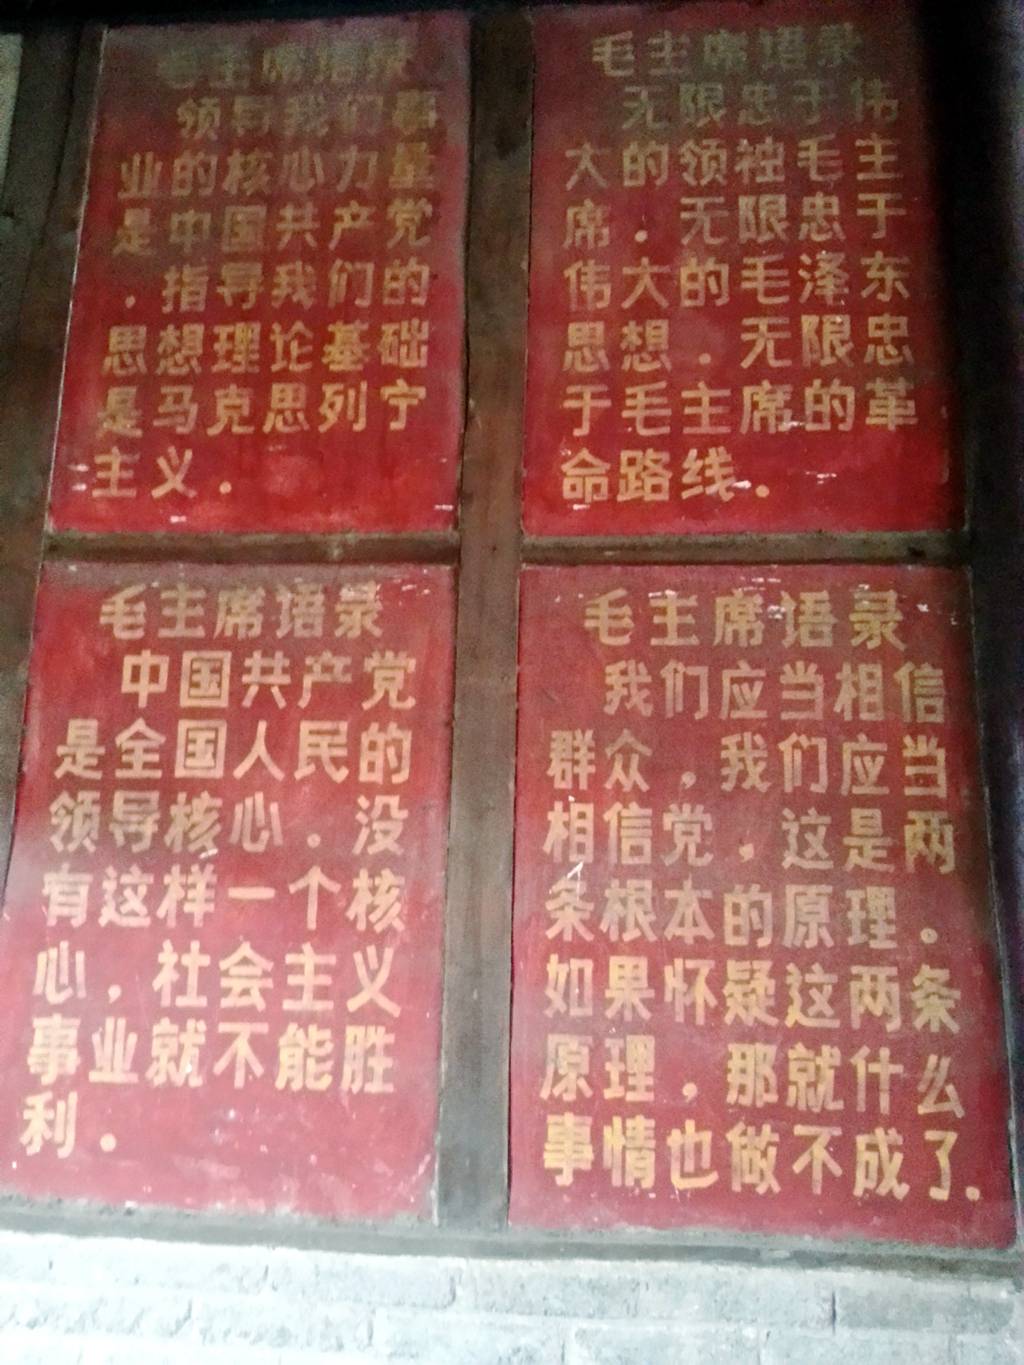 毛主席语录
领导我们事
业的核心力量
是中国共产党
，指导我们的
思想理论基础
是马克思列宁
主义．
毛主席语录
无限忠于伟
大的领袖毛主
席．无限忠于
伟大的毛泽东
思想．无限忠
于毛主席的革
命路线．
毛主席语录
中国共产党
是全国人民的
领导核心．没
有这样一个核
心，社会主义
事业就不能胜
利．
毛主席语录
我们应当相信
群众，我们应当
相信党，这是两
条根本的原理。
如果怀疑这两条
原理，那就什么
事情也做不成了．